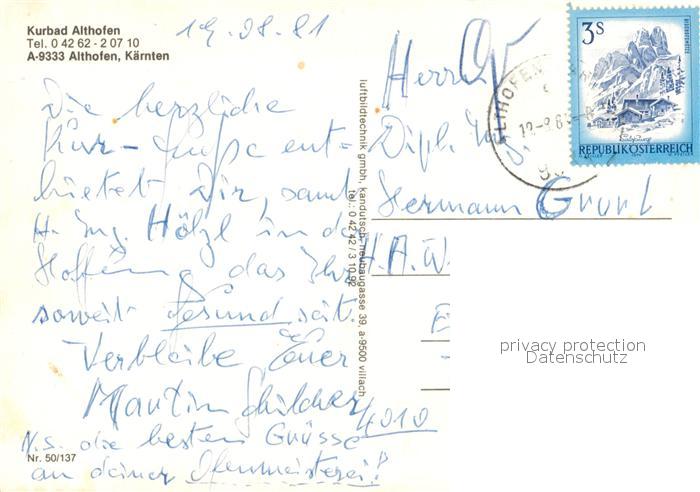 Kurbad Althofen
Tel. 0 42 62 - 2 07 10
A-9333 Althofen, Kärnten
19.08.81
Die herzliche
Kur-Grüße ent=
bietet Dir, samt
H. Ing. Hölzl in der
Hoffnung das Ihr
soweit Gesund seit.
Verbleibe Euer
Martin
N.S. die besten Grüsse
an deiner Ofenmeisterei!"
Nr. 50/137
luftbildtechnik gmbh, kandutsch, neubaugasse 39, a-9500 villach
tel.: 0 42 42 / 3 10 92
Herrn
Dipl. Ing.
Hermann
H.A.W
4010
3S
REPUBLIK ÖSTERREICH
ALTHOFEN
privacy protection
Datenschutz